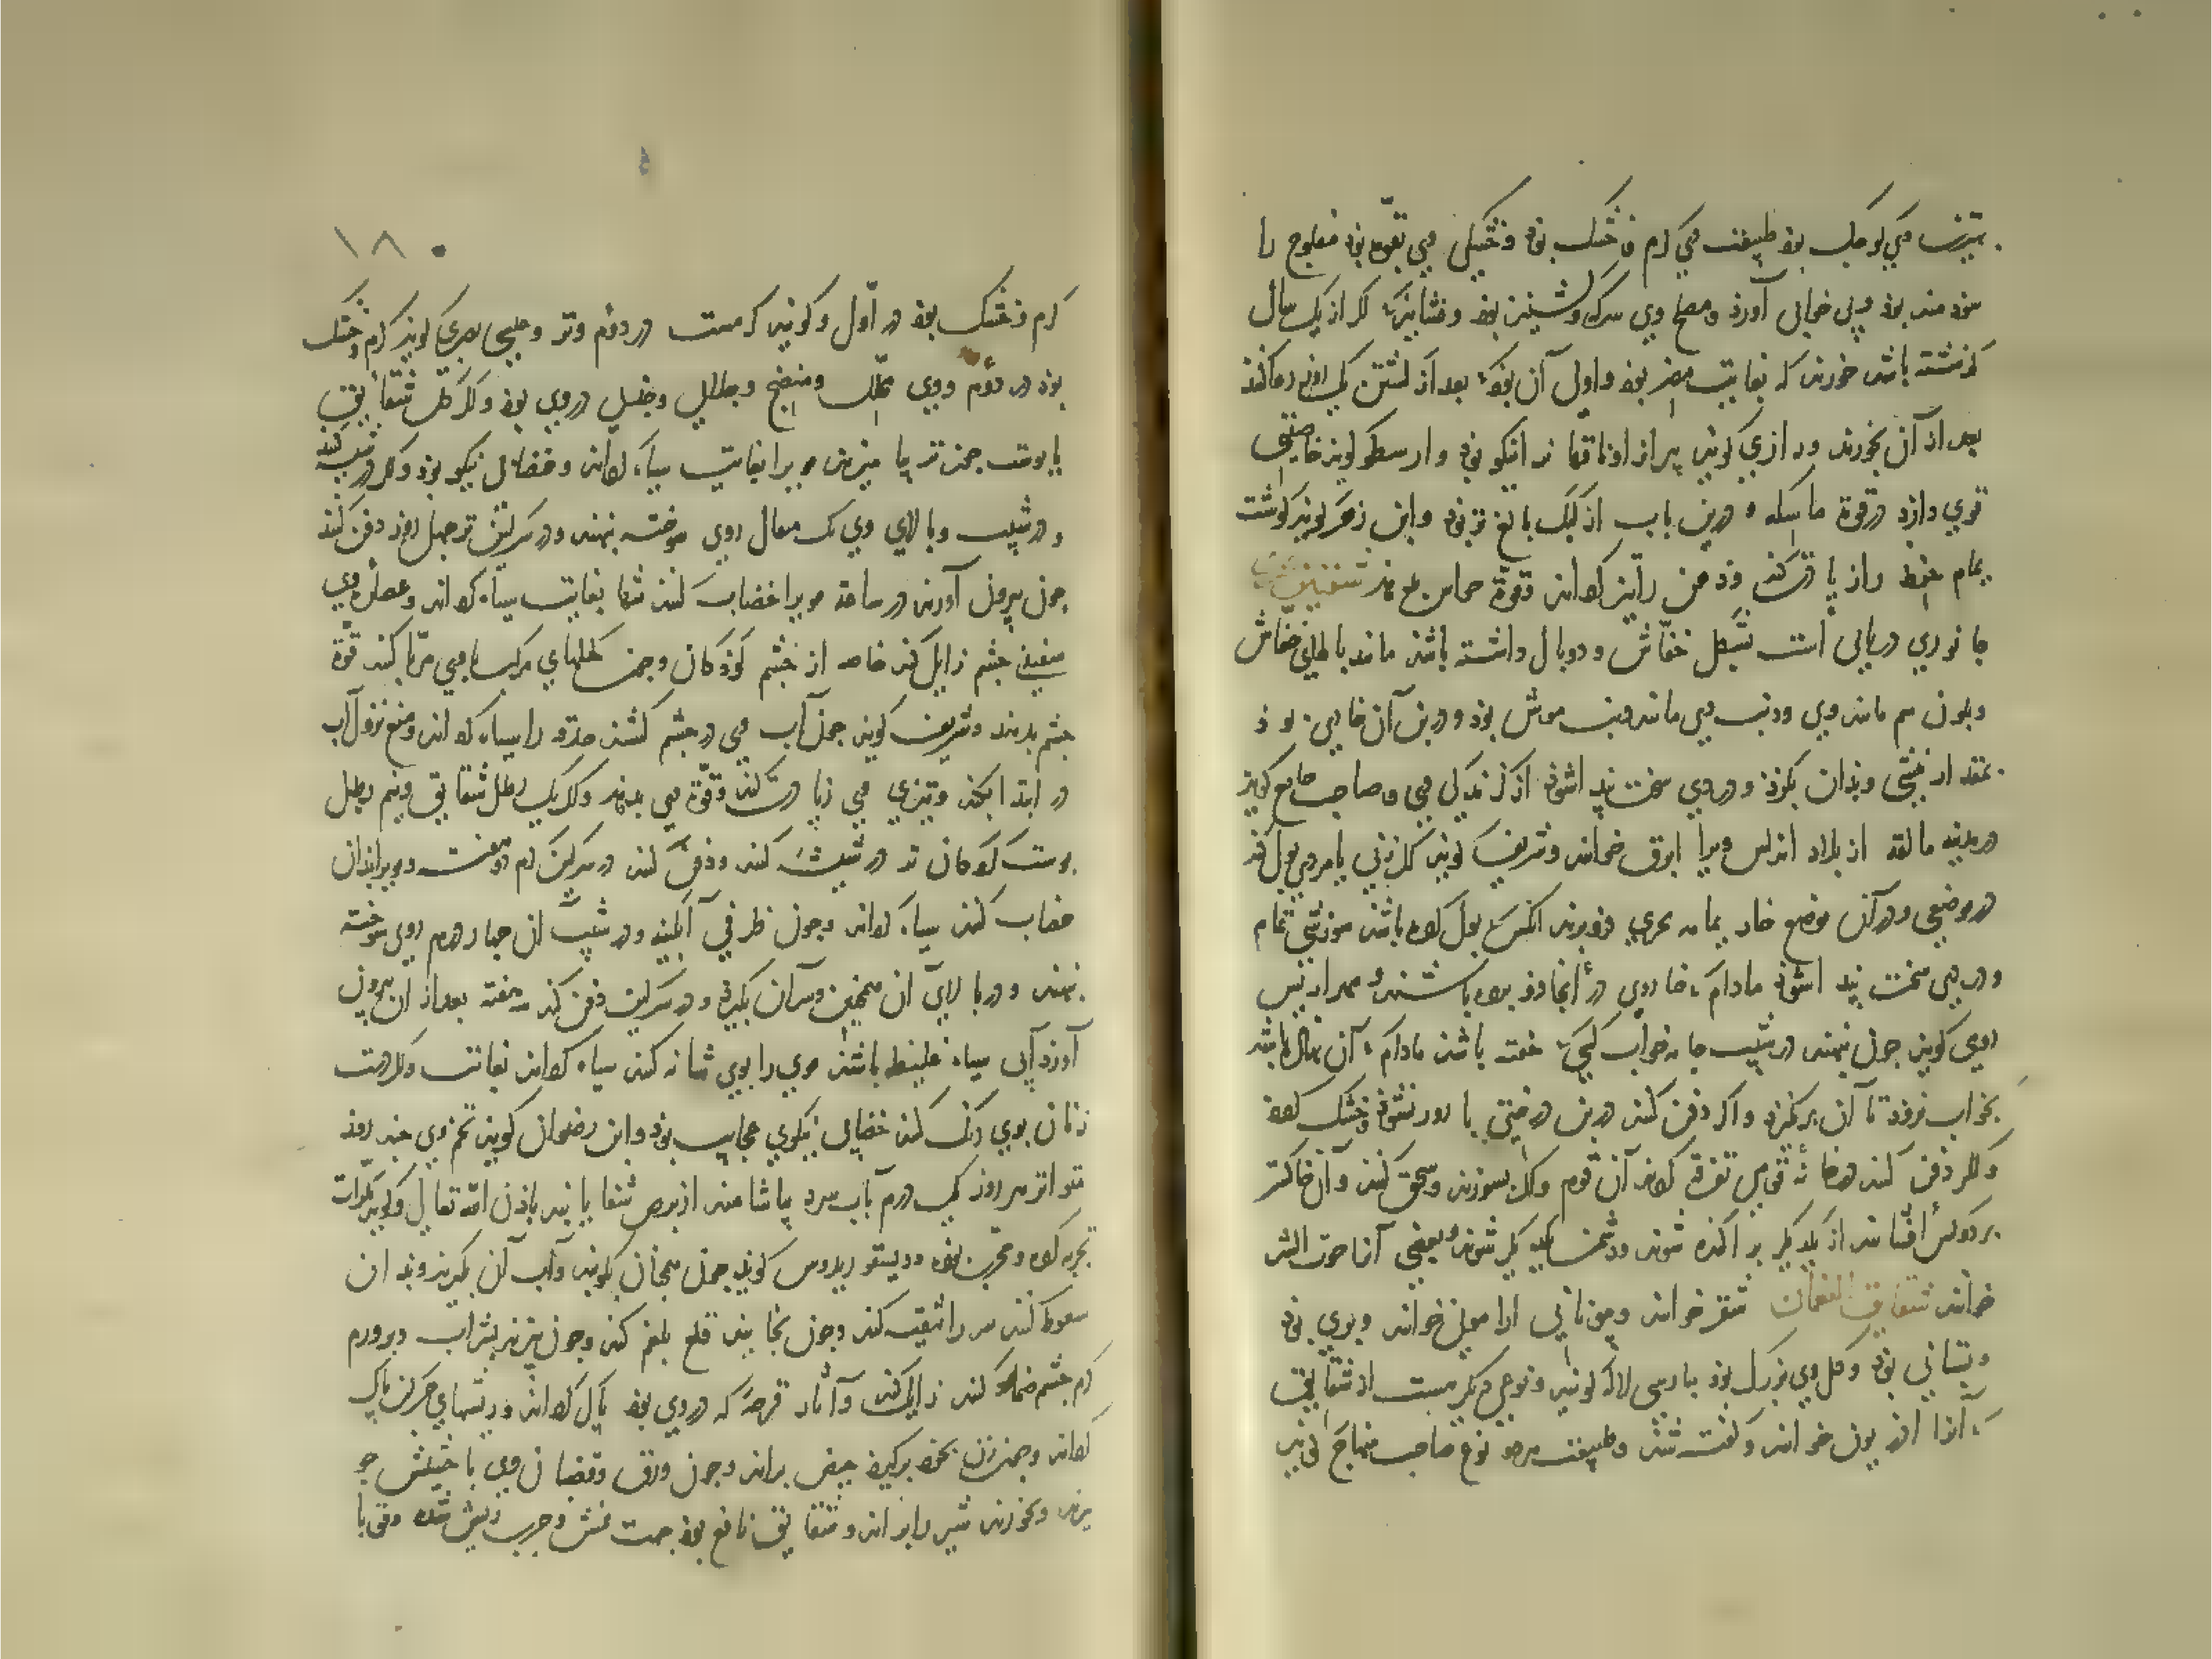 بهترین وی کوچک بود طبیعت وی گرم و خشک بود و خشکی وی بقوه بود مفلوج را
سودمند بود و بی خوابی آورد و مصلح وی سرکه و کشنیز بود و نشاید که از یک سال
گذشته باشد خوردن که بغایت مضر بود و اولی آن بود که بعد از کشتن یک روز رها کنند
بعد از آن بخورند و رازی گویند پرازو اناقتها را نیکو بود و ارسطو گویند خاصیتی
قوی دارد در قوة ماسکه و درین باب از کبک بالغ تر بود و ابن زهر گویند گوشت
تمام حفظ را زیادت کند و ذهن را تیز گرداند و قوة حواس بدهد شفنین بحری
جانوری دریایی است بشکل خفاش و دو بال داشته باشد مانند بالهای خفاش
و بلون هم مانند وی و دنب وی مانند دنب موش بود و در بن آن خاری بود
بمقدار نیشی و بدان بگزد و در وی سخت پیدا شود از گزندگی وی و صاحب جامع گوید
در مدینه مالقه از بلاد اندلس ویرا ابرق خوانند و شریف گویند که زنی یا مردی بول کند
در موضعی و در آن موضع خار یمامه بحری فرو برند آنکس که بول کرده باشد سوزشی تمام
و در وی سخت پیدا شود مادام که خار وی در آنجا فرو برده باشند و مهراریس
روی گویند چون بنهند در شیب جامه خواب کسی که خفته باشد مادام که آن نهاده باشد
بخواب نرود تا آن برگیرد و اگر دفن کنند در بن درختی بارور نشود و خشک گردد
و اگر دفن کنند در خانه قومی تفرقه کردند آن قوم و اگر بسوزند و سحق کنند و آن خاکستر
بر دو کس افشانند از یکدیگر پراکنده شوند و دشمن یکدیگر شوند و بعضی آنرا حوت الشر
خوانند شقایق النعمان شقر خوانند و یونانی ارامونی خوانند و بری بود
و بستانی بود و گل وی بزرگ بود بپارسی لاله گویند و نوعی دیگر هست از شقایق
که آنرا اذریون خوانند و گفته شد و طبیعت هر دو نوع صاحب منهاج گویند
۱۸۰
گرم و خشک بود در اول و گویند گرمست در دوم و تر و عیسی بصری گویند گرم و خشک
بود در دوم و وی محلل و منضج و جلا وی و تحلیل در وی بود و اگر گل شقایق
با پوست جوز تر بیامیزند مویرا بغایت سیاه گرداند و خضابی نیکو بود و اگر در شیشه کنند
و در شیب و بالای وی یک مثقال روی سوخته بنهند و در سرگین تر چهل روز دفن کنند
چون بیرون آورند در ساعت مویرا خضاب کنند شفا بغایت سیاه گرداند و عصاره وی
سفیدی چشم زایل کند خاصه از چشم کودکان و چون کحلهای مرکب با وی مربا کنند قوة
چشم بدهد و شریف گویند چون آب وی در چشم کشند حدقه را سیاه گرداند و منع نزول آب
در ابتدا بکند و تیزی وی زیادت کند و قوة وی بدهد و اگر یک رطل شقایق و نیم رطل
پوست گردکان تر در شیشه کنند و دفن کنند در سرگین گرم دو هفته و مویرا بدان
خضاب کنند سیاه گرداند و چون ظرفی آبگینه و در شیب آن چهار درم روی سوخته
بنهند و در بالای آن همچنین و سر آن بگیرند و در سرگین دفن کنند سه هفته بعد از آن بیرون
آورند آبی سیاه غلیظ باشد موی را بوی شانه کنند سیاه گرداند بغایت و اگر دست
زنان بوی رنگ کنند خضابی نیکوی عجایب بود و ابن رضوان گویند تخم وی چند روز
متواتر هر روز یک درم بآب سرد بیاشامند از برص شفا یابند باذن الله تعالی و گویند بکرات
تجربه کرده و مجرب بوده و دیسقوریدوس گویند چون بیخ آن بکوبند و آب آن بگیرند و بدان
سعوط کنند سر را تنقیت کند و چون بخایند قلع بلغم کند و چون بپزند بشراب و بر ورم
گرم چشم ضماد کنند زایل کند و آثار قرحه که در وی بود پاک گرداند و ریشهای چرکین پاک
گرداند و چون زن بخود برگیرد حیض براند و چون ورق و قضبان وی با حشیش جو
بپزند و بخورند شیر را براند و شقایق نافع بود جهت نمش و جرب ریش شده و قوبا